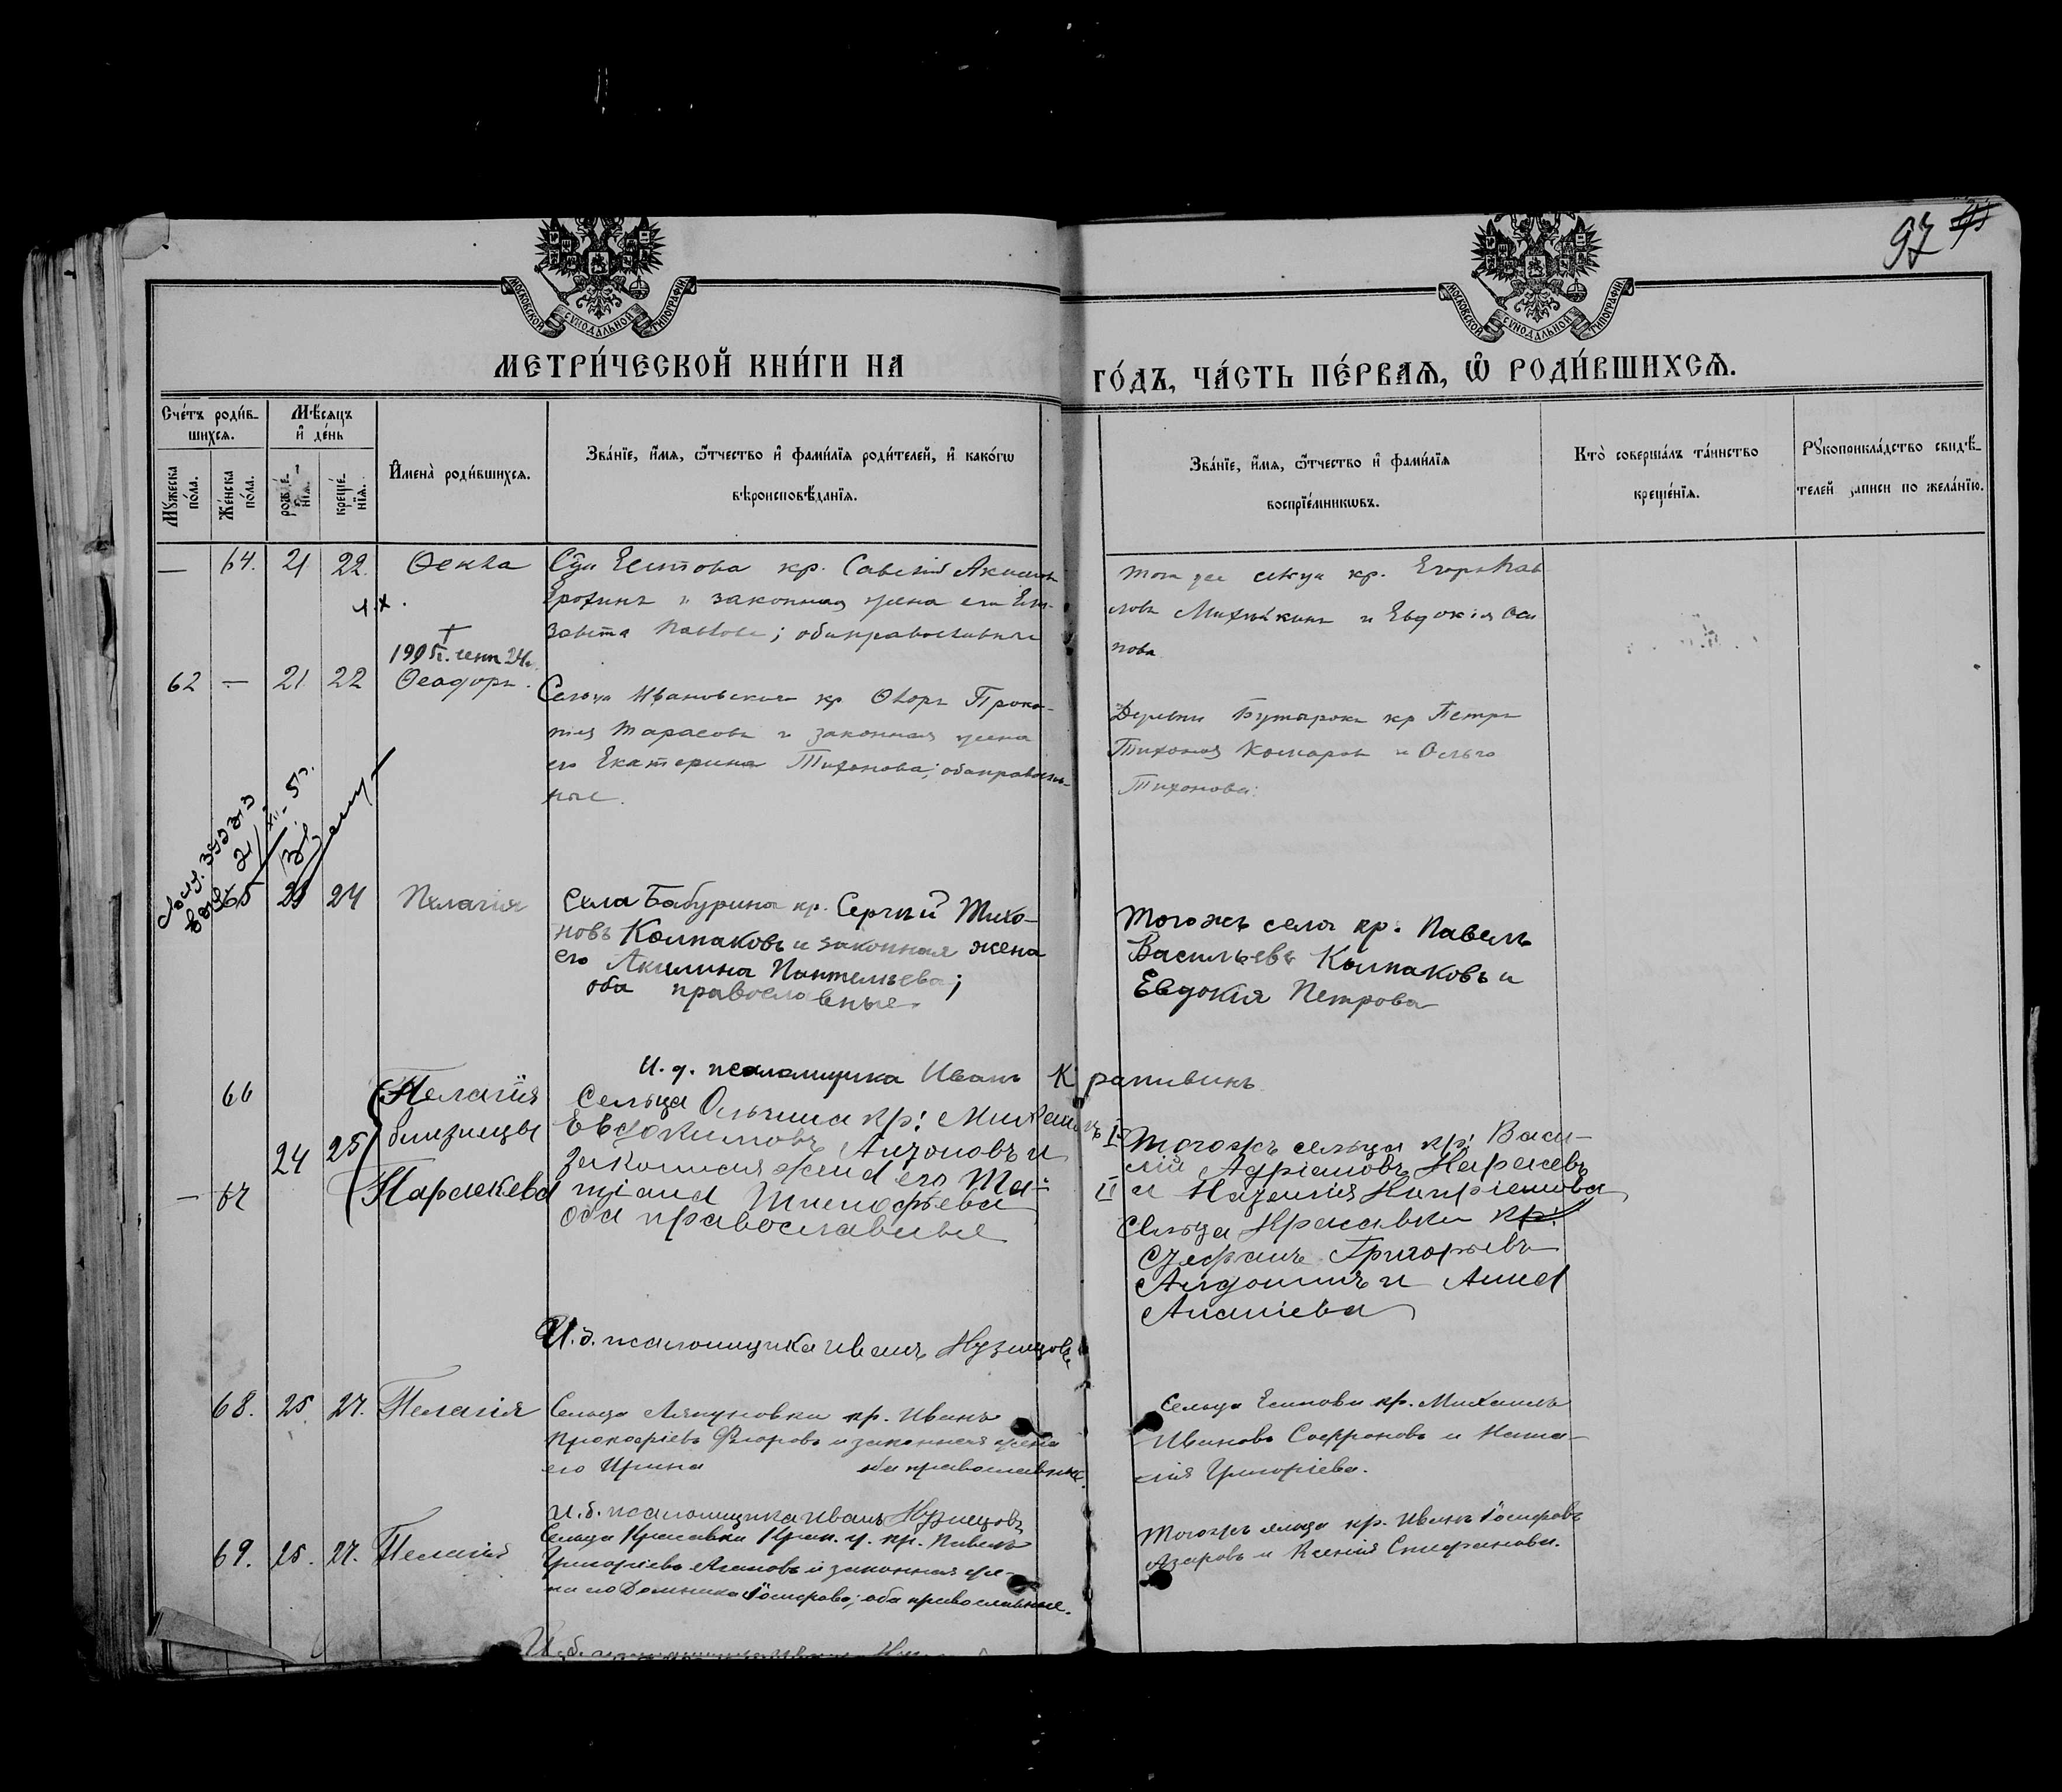 97
МОСКОВСКОЙ СѴНОДАЛЬНОЙ ТИПОГРАФІИ
МОСКОВСКОЙ СѴНОДАЛЬНОЙ ТИПОГРАФІИ
МЕТРИ́ЧЕСКОЙ КНИ́ГИ НА
ГО́ДЪ, ЧА́СТЬ ПЕ́РВАѦ, Ѡ҆ РОДИ́ВШИХСѦ.
Сче́тъ роди́в-
шихсѧ.
Мѣ́сѧцъ
и҆ де́нь
Мꙋ́жеска
по́ла.
Же́нска
по́ла.
рожде́-
нїѧ.
креще́-
нїѧ.
И҆мена̀ роди́вшихсѧ.
Зва́нїе, и҆́мѧ, ѻ҆́тчество и҆ фамі́лїѧ роди́телей, и҆ како́гѡ
вѣроисповѣ́данїѧ.
Зва́нїе, и҆́мѧ, ѻ҆́тчество и҆ фамі́лїѧ
воспрїе́мникѡвъ.
Кто̀ соверша́лъ та́инство
креще́нїѧ.
Рꙋкоприкла́дство свидѣ́-
телей записи по жела́нїю.
— 64. 21 22. Ѳекла кр. Савелій
Ерохинъ и законная жена его Ели-
завета Павлова; обаправославные
тогоже сельца кр. Егоръ Пав
ловъ и Евдокія Оси
пова
1905г. сент 24
62 — 21 22 Ѳеодоръ. Сельца Ивановскаго кр Ѳдоръ Проко-
пія Тарасовъ и законная жена
его Екатерина Тихонова; обаправослав-
ные.
Деревни Бутырокъ кр Петръ
Тихоновъ Комаровъ и Ольга
Тихонова.
65 23 24 Пелагія Села Бабурина кр. Сергій Тихо-
новъ Колпаковъ и законная жена
его Акилина Пантельева;
оба православные.
Тогожъ села кр. Павелъ
Васильевъ Колпаковъ и
Евдокія Петрова
И. д. псаломщика Иванъ Крапивинъ
66 Пелагія
близнецы
24 25
— 67 Параскева
Сельца кр: Михаилъ
Евдокимовъ и
законная жена его Та-
тіана Тимофѣева
оба православные
I Тогожъ сельца кр: Васи-
лій Адріановъ
II и
Сельца Красавки кр:
Стефанъ Григорьевъ
и Анна
Ананіева
И. д. псаломщика Иванъ Кузнецовъ
68. 25. 27. Пелагія Сельца Ляпуновки кр. Иванъ
Прокофіевъ Фларовъ и законная жена
его Ирина оба православные.
Сельца Еситова кр. Михаилъ
Ивановъ Софроновъ и Ната-
лія Григоріева.
И. д. псаломщика Иванъ Кузнецовъ
69. 25. 27. Пелагія Сельца Красавки кр. Павелъ
Григоріевъ Агаповъ и законная же-
на его Домника Іосифова; оба православные.
Тогожъ сельца кр. Иванъ Іосифовъ
Азаровъ и Ксенія Стефанова.